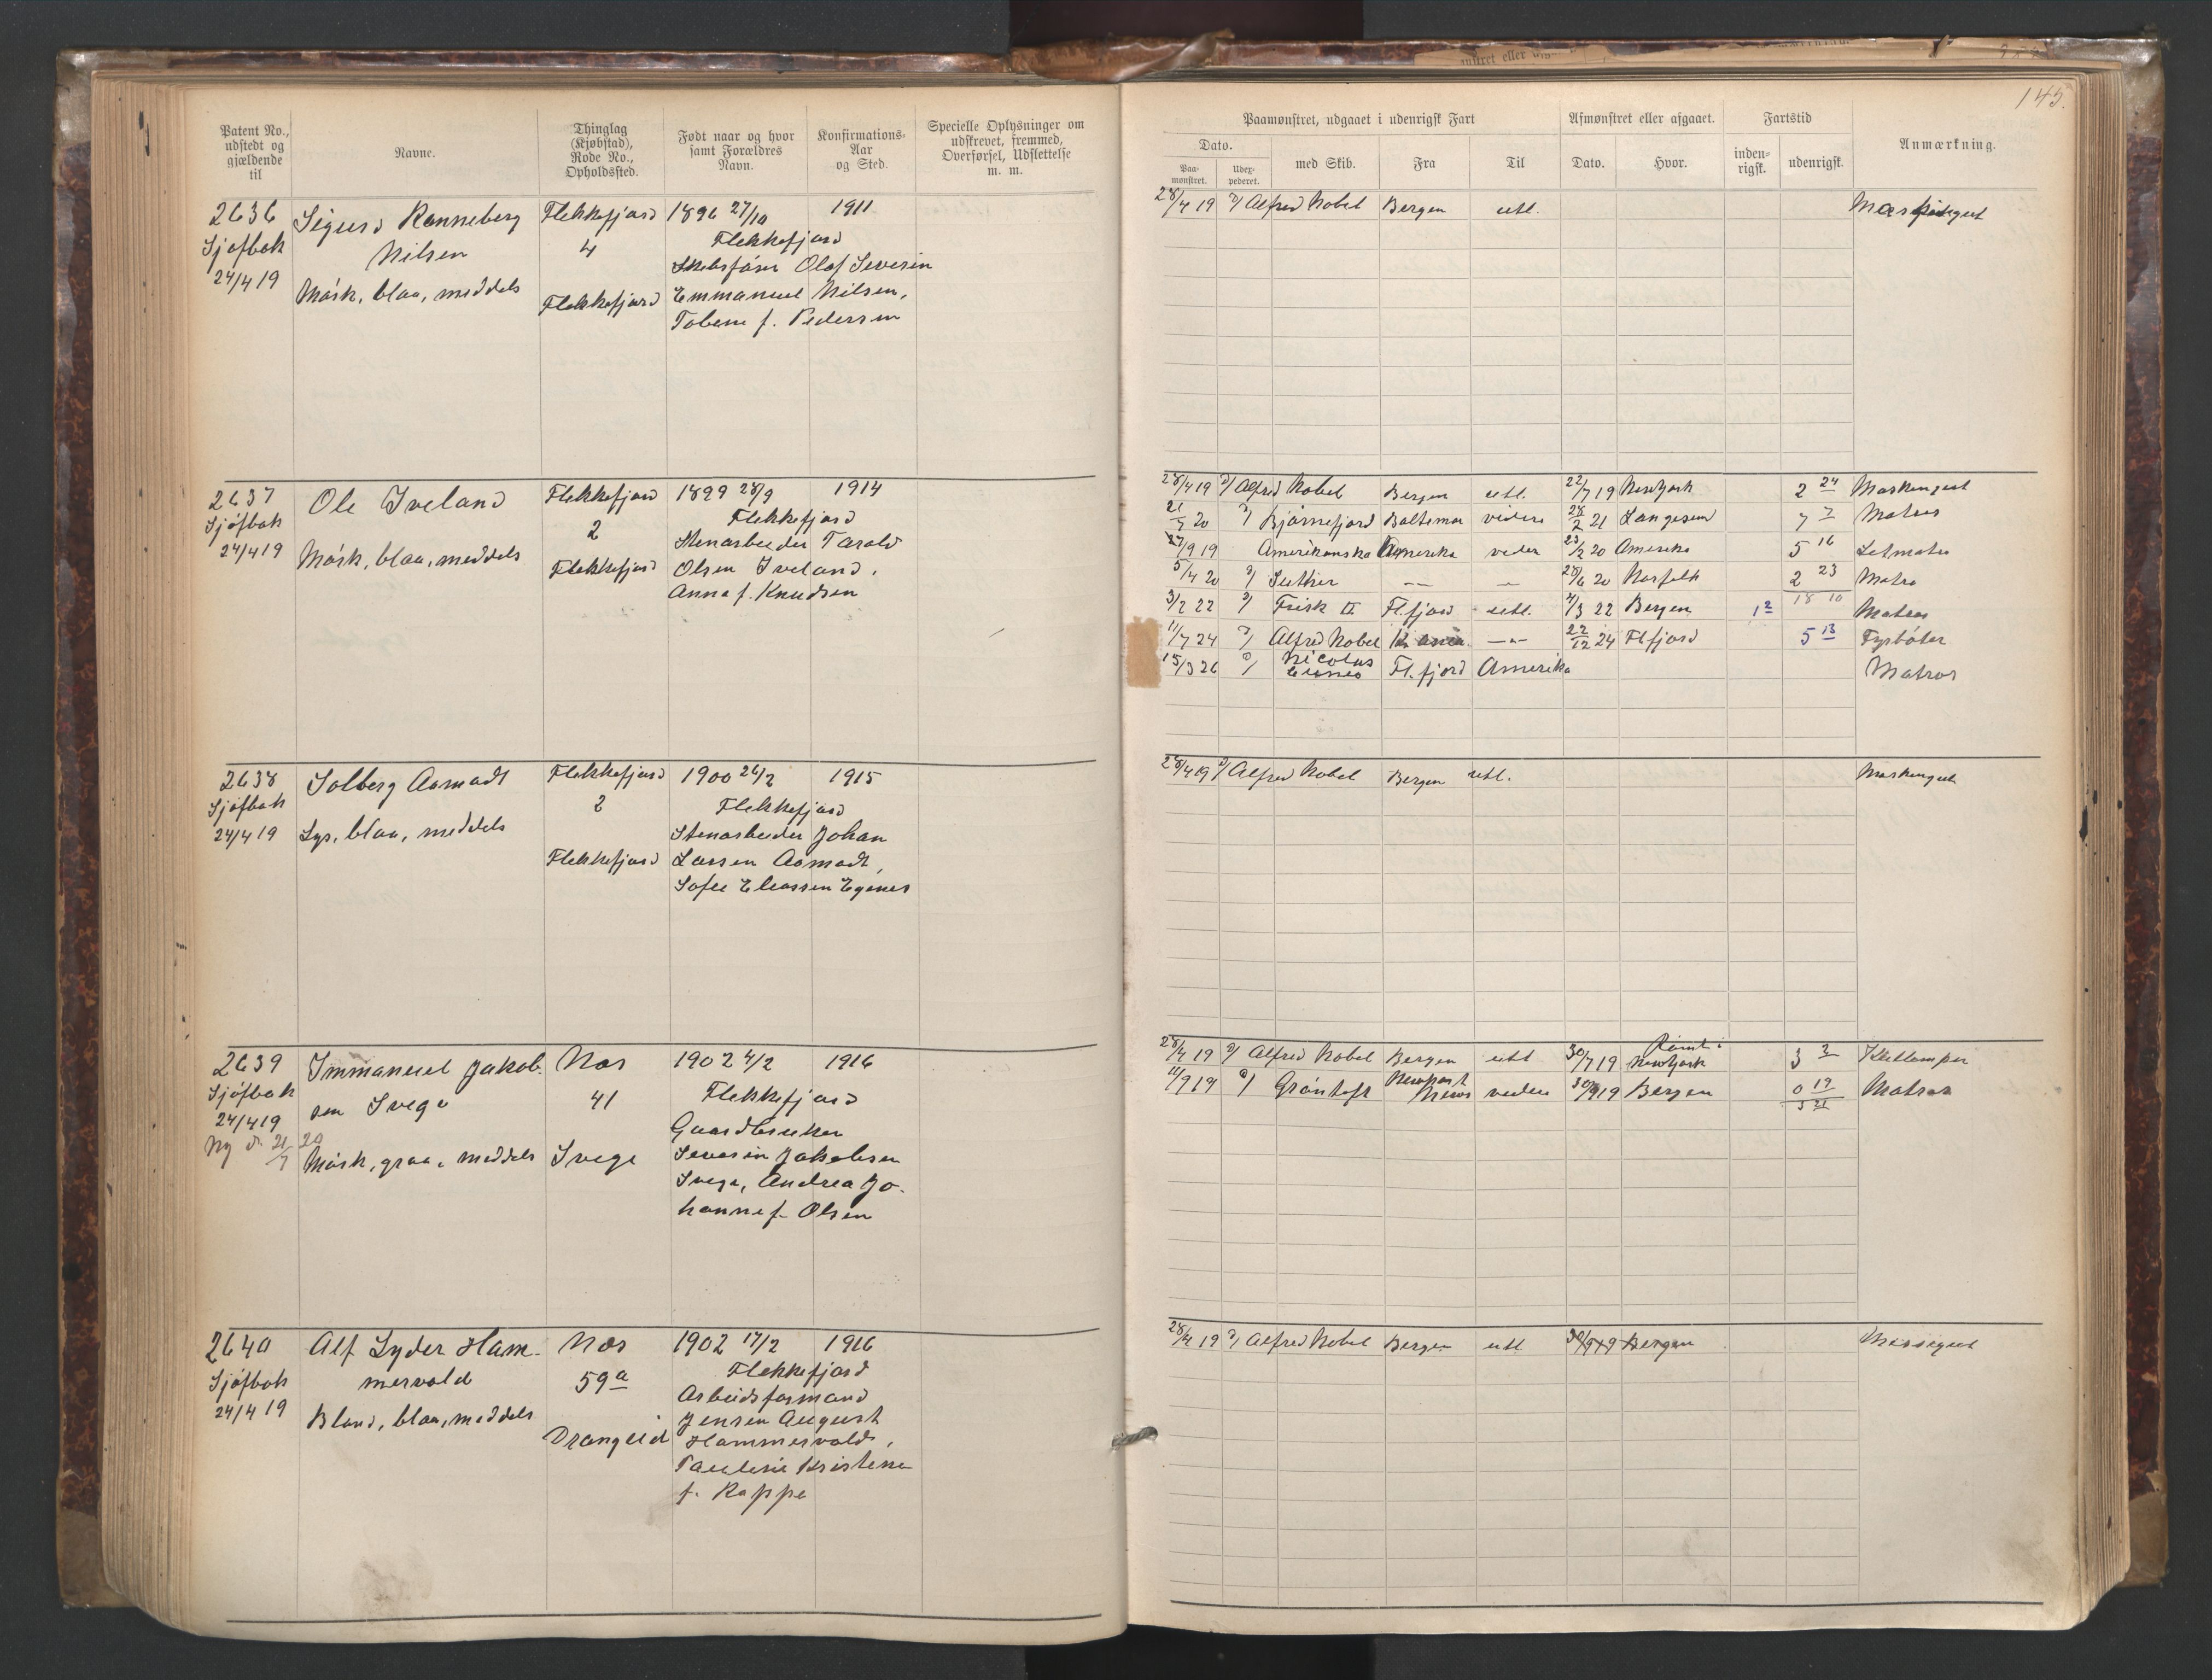 145.
Patent No., udstedt og gjældende til
Navne.
Thinglag (Kjøbstad), Rode No., Opholdssted.
Født naar og hvor samt Forældres Navn.
Konfirmations-Aar og Sted.
Specielle Oplysninger om udskrevet, fremmed, Overførsel, Udslettelse m. m.
Paamønstret, udgaaet i udenrigsk Fart
Afmønstret eller afgaaet.
Fartstid
Anmærkning.
Dato.
med Skib.
Fra
Til
Dato.
Hvor.
inden-rigsk.
udenrigsk.
Paa-monstret.
2636 Sigurd Ranneberg Flekkefjord 1896 27/10 1911
Sjøfbok Nilsen 4 Flekkefjord
24/4 19 Mørk, blaa, meddels Flekkefjord Olaf Severin
Emmanuel Nilsen,
f. Pedersen
28/4 19 Alfred Nobel Bergen utl.
2637 Ole Iveland Flekkefjord 1899 28/9 1914
Sjøfbok 2 Flekkefjord
24/4 19 Mørk, blaa, meddels Flekkefjord Stenarbeider Tarald
Olsen Iveland,
Anna f. Knudsen
28/4 19 Alfred Nobel Bergen utl. 22/7 19 Newyork 2 24 Maskingut
21/7 20 Bjørnefjord videre 28/2 21 Langesund 7 7 Matros
27/9 19 Amerikanska Amerika 23/2 20 Amerika 5 16 Letmatros
5/4 20 28/6 20 Norfolk 2 23
18 10
3/2 22 Frisk II Fl.fjord utl. 4/3 22 Bergen 1 2 Matros
11/7 24 Alfred Nobel 22/12 24 Flfjord 5 13 Fyrbøter
15/3 26 Nicolas Fl.fjord Amerika Matros
2638 Solberg Aamodt Flekkefjord 1900 24/2 1915
Sjøfbok 2 Flekkefjord
24/4 19 Lys, blaa, meddels Flekkefjord Stenarbeider Johan
Larsen Aamodt,
Sofie Eliassen Egenes
28/4 19 Alfred Nobel Bergen utl. Maskingut
2639 Immanuel Jakob- Nes 1902 4/2 1916
Sjøfbok sen Svege 41 Flekkefjord
24/4 19 Gaardbruker
Ny d. 21/7 20 Mørk, graa, meddels Svege Severin Jakobsen
Svege, Andrea Jo-
hanne f. Olsen
28/4 19 Alfred Nobel Bergen utl 30/7 19 Rømt i Newyork 3 2 Kullemper
11/9 19 Grøntoft Newport News 30/9 19 Bergen 0 19 Matros
3 21
2640 Alf Lyder Ham- Nes 1902 17/2 1916
Sjøfbok mervold 59a Flekkefjord
24/4 19 Blond, blaa, meddels Drangeid Arbeidsformand
Jensen August
Hammervold,
Kristine
f. Rappe
28/4 19 Alfred Nobel Bergen utl 30/9 19 Bergen Messegut